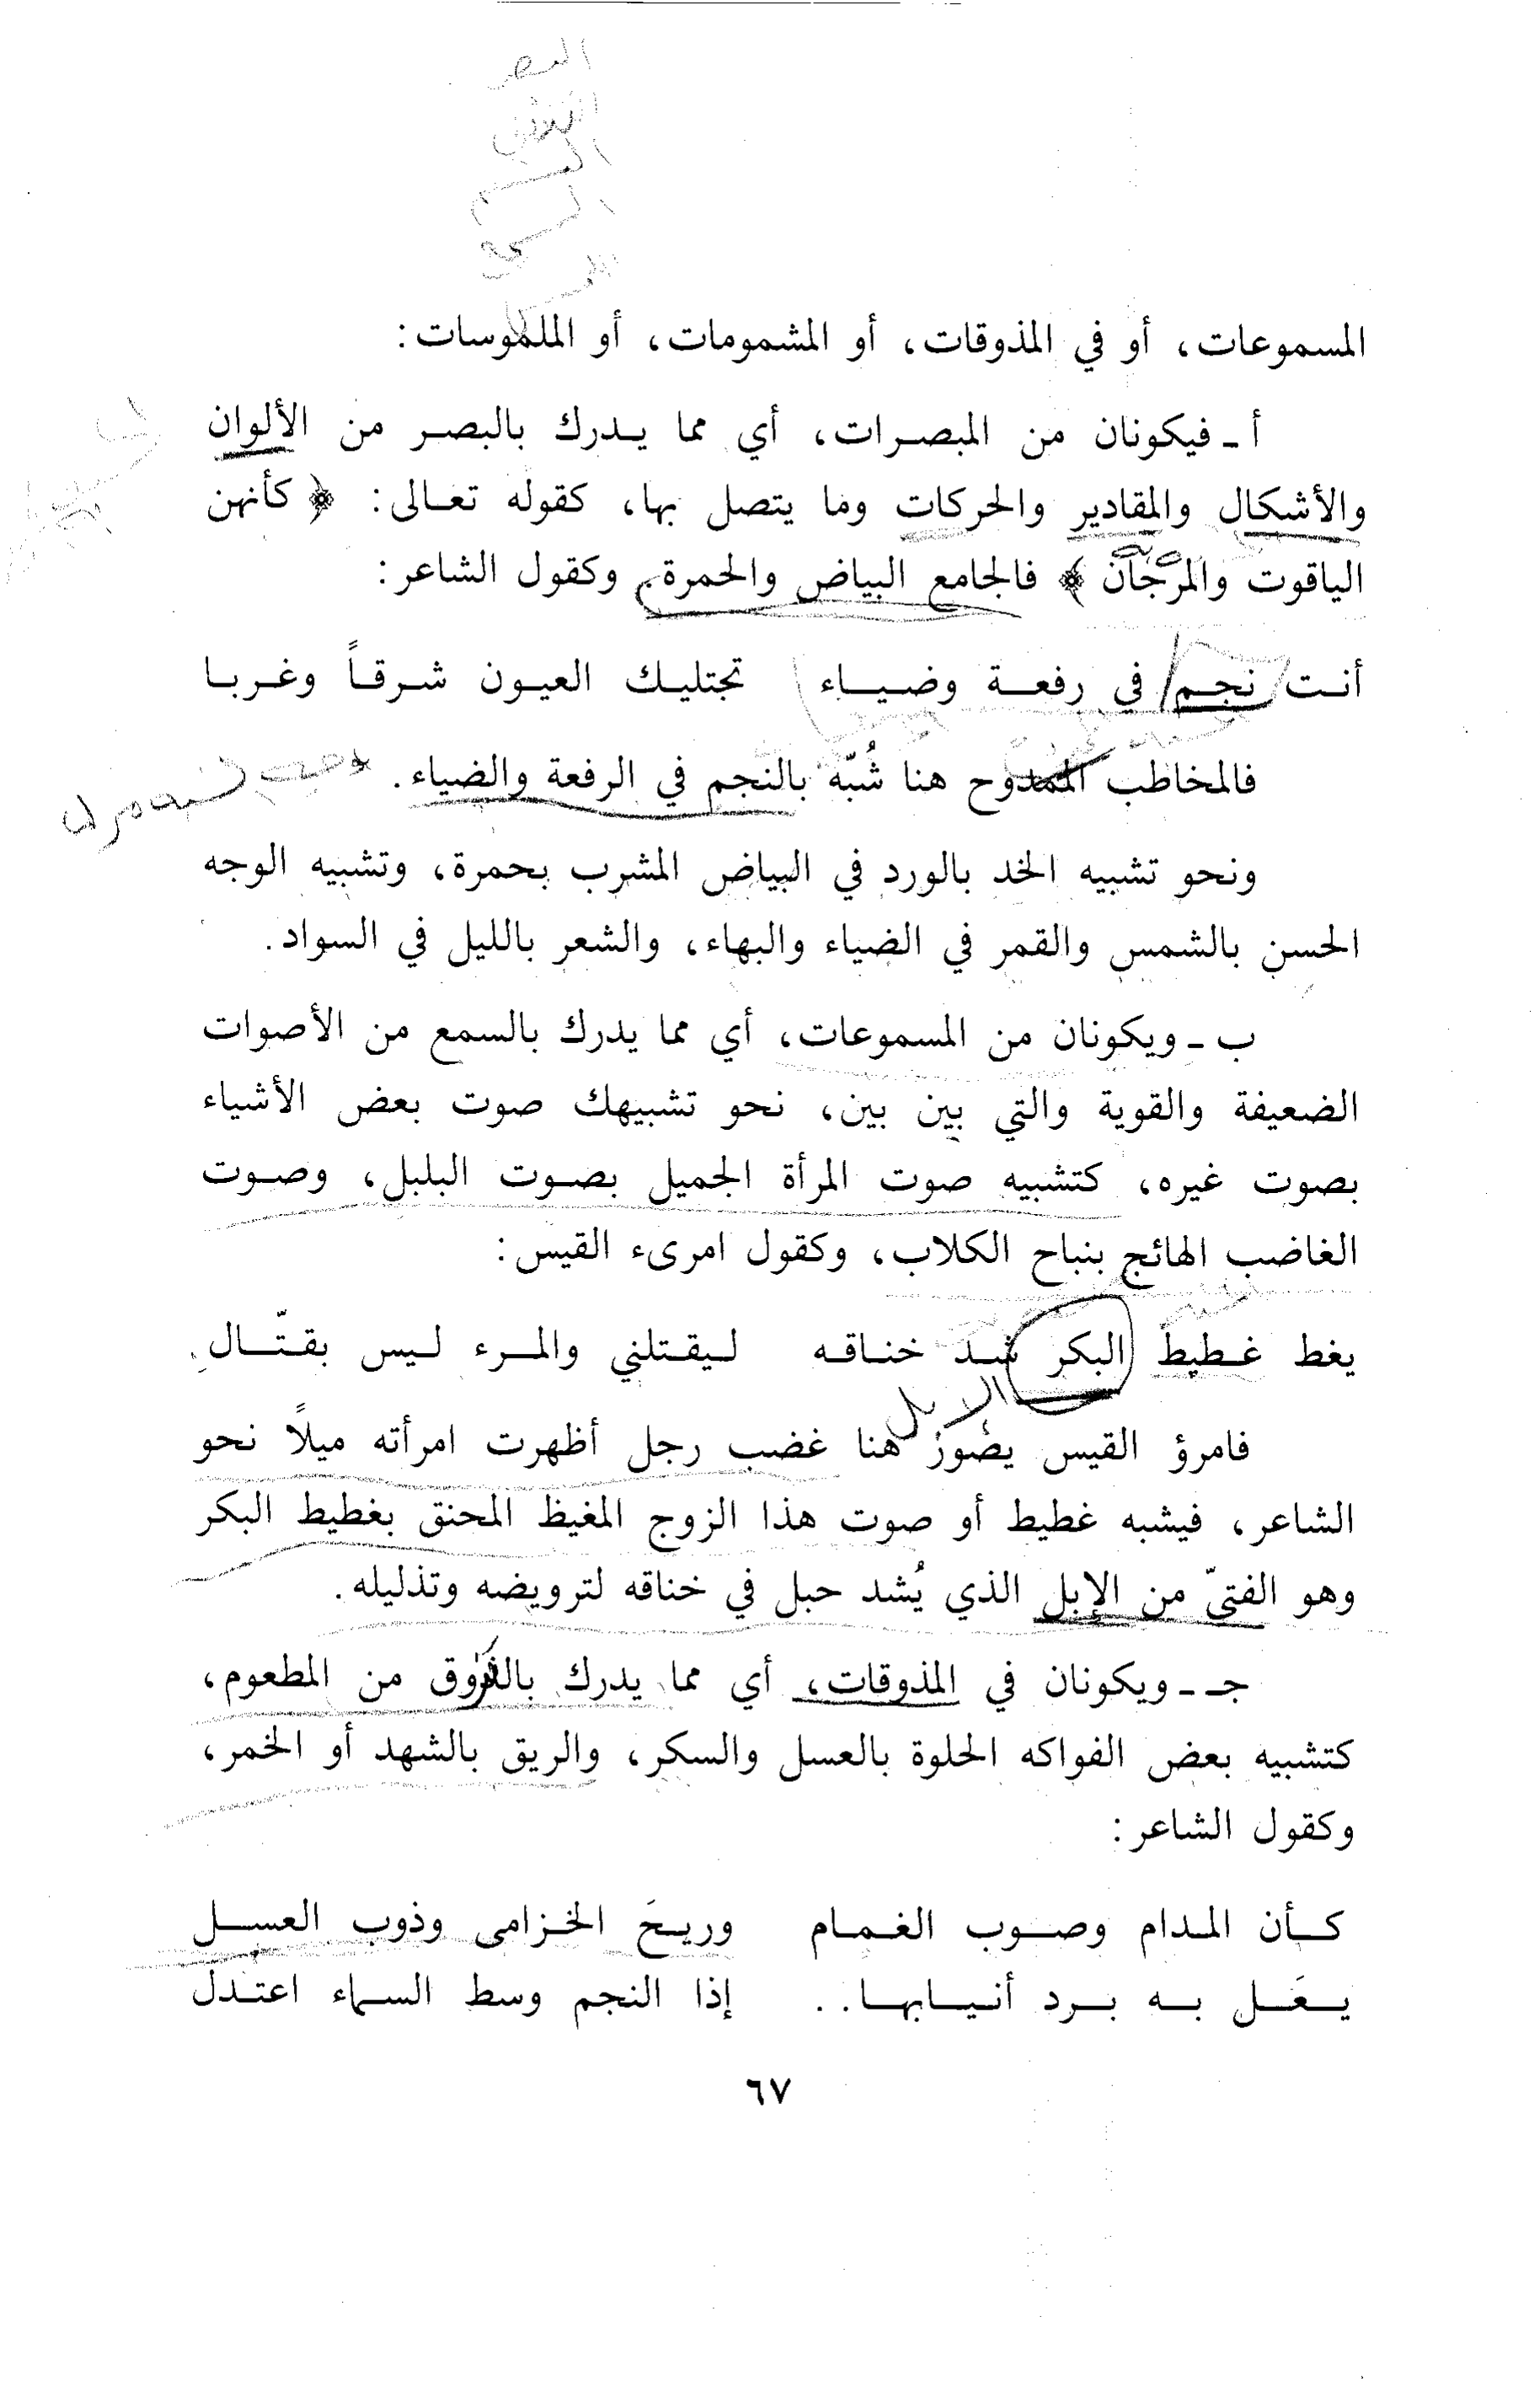 المسموعات، أو في المذوقات، أو المشمومات، أو الملموسات:
أ ـ فيكونان من المبصرات، أي مما يدرك بالبصر من الألوان
والأشكال والمقادير والحركات وما يتصل بها، كقوله تعالى: ﴿ كأنهن
الياقوت والمرجان ﴾ فالجامع البياض والحمرة. وكقول الشاعر:
أنت نجم في رفعة وضياء تجتليك العيون شرقاً وغربا
فالمخاطب الممدوح هنا شُبّه بالنجم في الرفعة والضياء.
ونحو تشبيه الخد بالورد في البياض المشرب بحمرة، وتشبيه الوجه
الحسن بالشمس والقمر في الضياء والبهاء، والشعر بالليل في السواد.
ب ـ ويكونان من المسموعات، أي مما يدرك بالسمع من الأصوات
الضعيفة والقوية والتي بين بين، نحو تشبيهك صوت بعض الأشياء
بصوت غيره، كتشبيه صوت المرأة الجميل بصوت البلبل، وصوت
الغاضب الهائج بنباح الكلاب، وكقول امرىء القيس:
يغط غطيط البكر شد خناقه ليقتلني والمرء ليس بقتّال.
الابل
فامرؤ القيس يصور هنا غضب رجل أظهرت امرأته ميلاً نحو
الشاعر، فيشبه غطيط أو صوت هذا الزوج المغيظ المحنق بغطيط البكر
وهو الفتيّ من الإبل الذي يُشد حبل في خناقه لترويضه وتذليله.
جـ ـ ويكونان في المذوقات، أي مما يدرك بالذوق من المطعوم،
كتشبيه بعض الفواكه الحلوة بالعسل والسكر، والريق بالشهد أو الخمر،
وكقول الشاعر:
كأن المدام وصوب الغمام وريحَ الخزامى وذوب العسل
يعَل به برد أنيابها.. إذا النجم وسط السماء اعتدل
٦٧